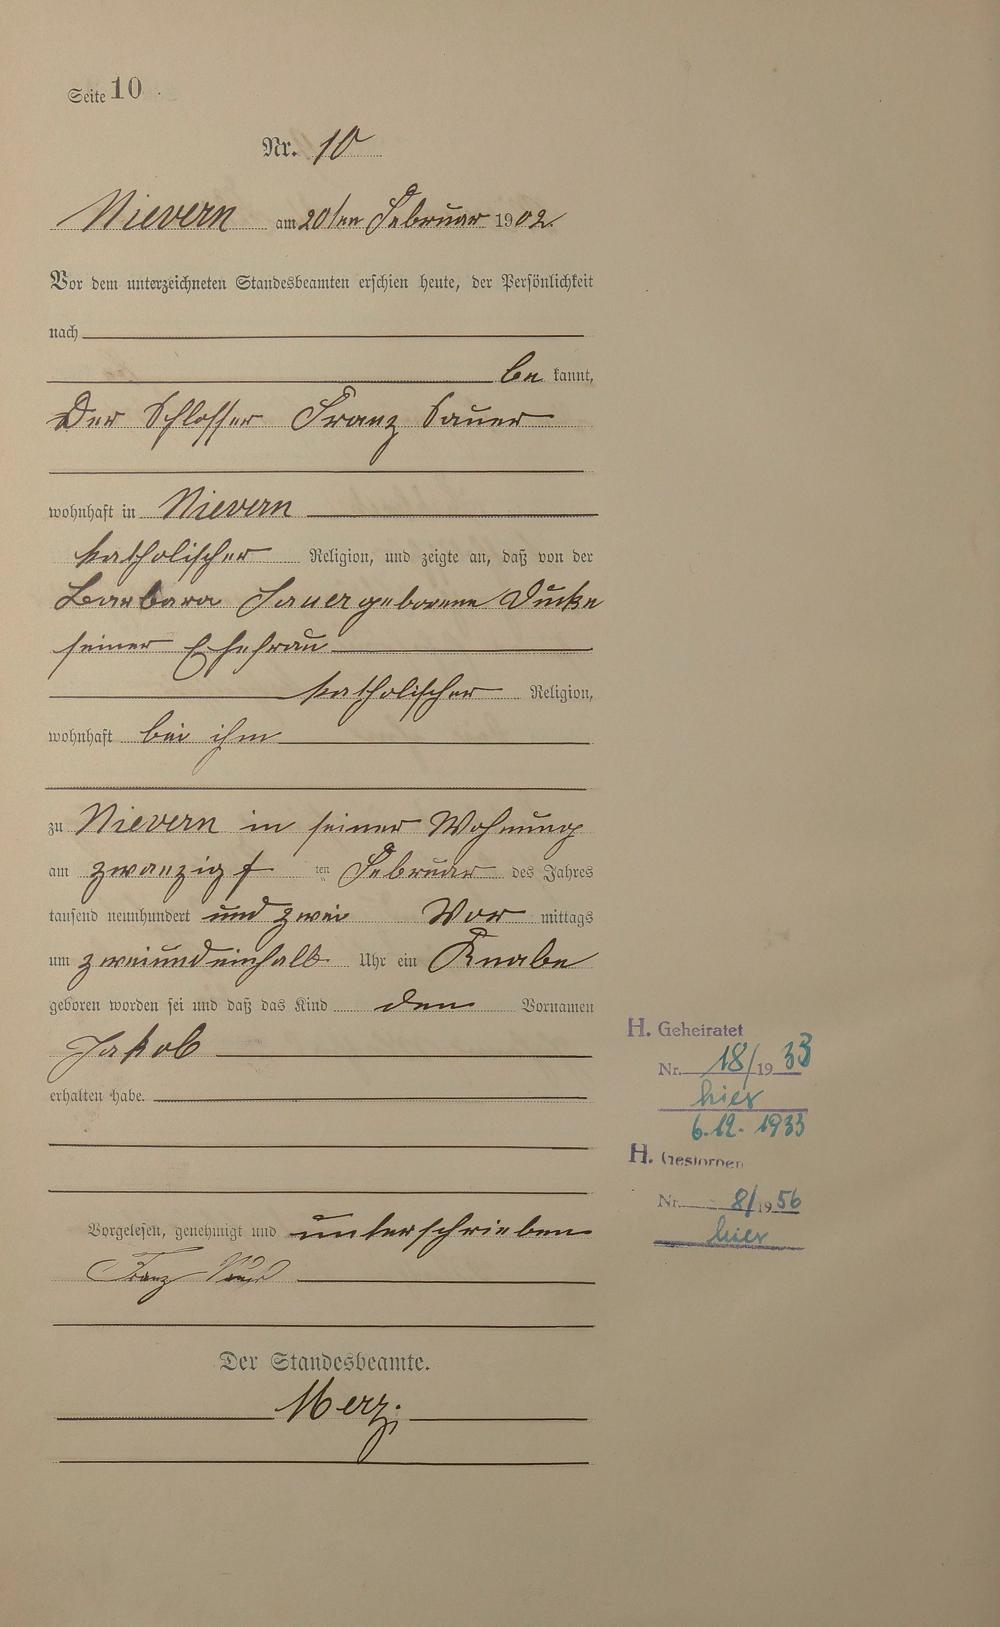 Seite 10
Nr. 10
Nievern am 20ten Februar 1902.
Vor dem unterzeichneten Standesbeamten erschien heute, der Persönlichkeit
nach
be kannt,
Der Schlosser Franz Sauer
wohnhaft in Nievern
katholischer Religion, und zeigte an, daß von der
Barbara Sauer geborene
seiner Ehefrau
katholischer Religion,
wohnhaft bei ihm
zu Nievern in seiner Wohnung
am zwanzigs ten Februar des Jahres
tausend neunhundert und zwei Vor mittags
um zweiundeinhalb Uhr ein Knabe
geboren worden sei und daß das Kind den Vornamen
Jakob
erhalten habe.
Vorgelesen, genehmigt und unterschrieben
Franz
Der Standesbeamte.
Merz
H. Geheiratet
Nr. 18/1933
hier
6.12.1933
H. Gestorben
Nr. 8/1956
hier